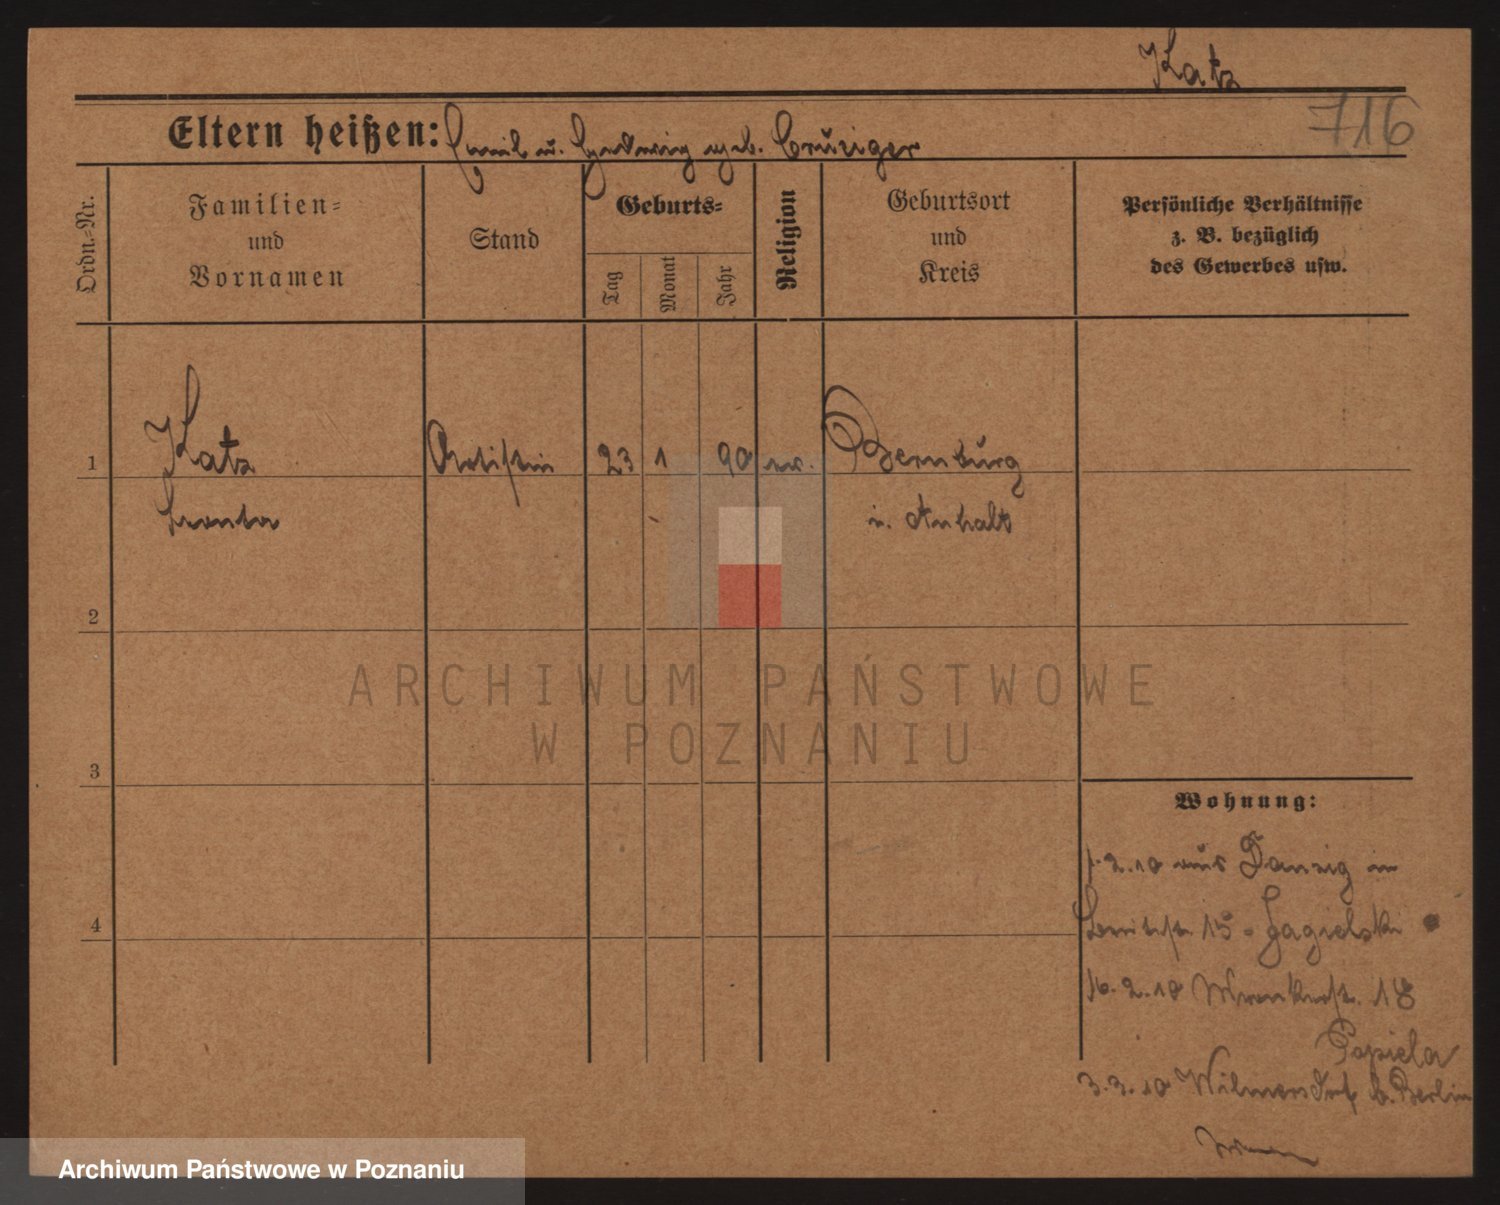 Katz
716
Eltern heißen: Emil u. Hedwig geb. Cruziger
Ordn.=Nr.
Familien=
und
Vornamen
Stand
Geburts=
Tag
Monat
Jahr
Religion
Geburtsort
und
Kreis
Persönliche Verhältnisse
z. B. bezüglich
des Gewerbes usw.
1 Katz Artistin 23 1 90 ev. Bernburg
i. Anhalt
2
3
4
Wohnung:
1.2.10 aus Danzig in
15 - Jagielski
16.2.10 Wronkerstr. 18
Papiela
3.3.10 Wilmersdorf b. Berlin
ARCHIWUM PAŃSTWOWE
W POZNANIU
Archiwum Państwowe w Poznaniu